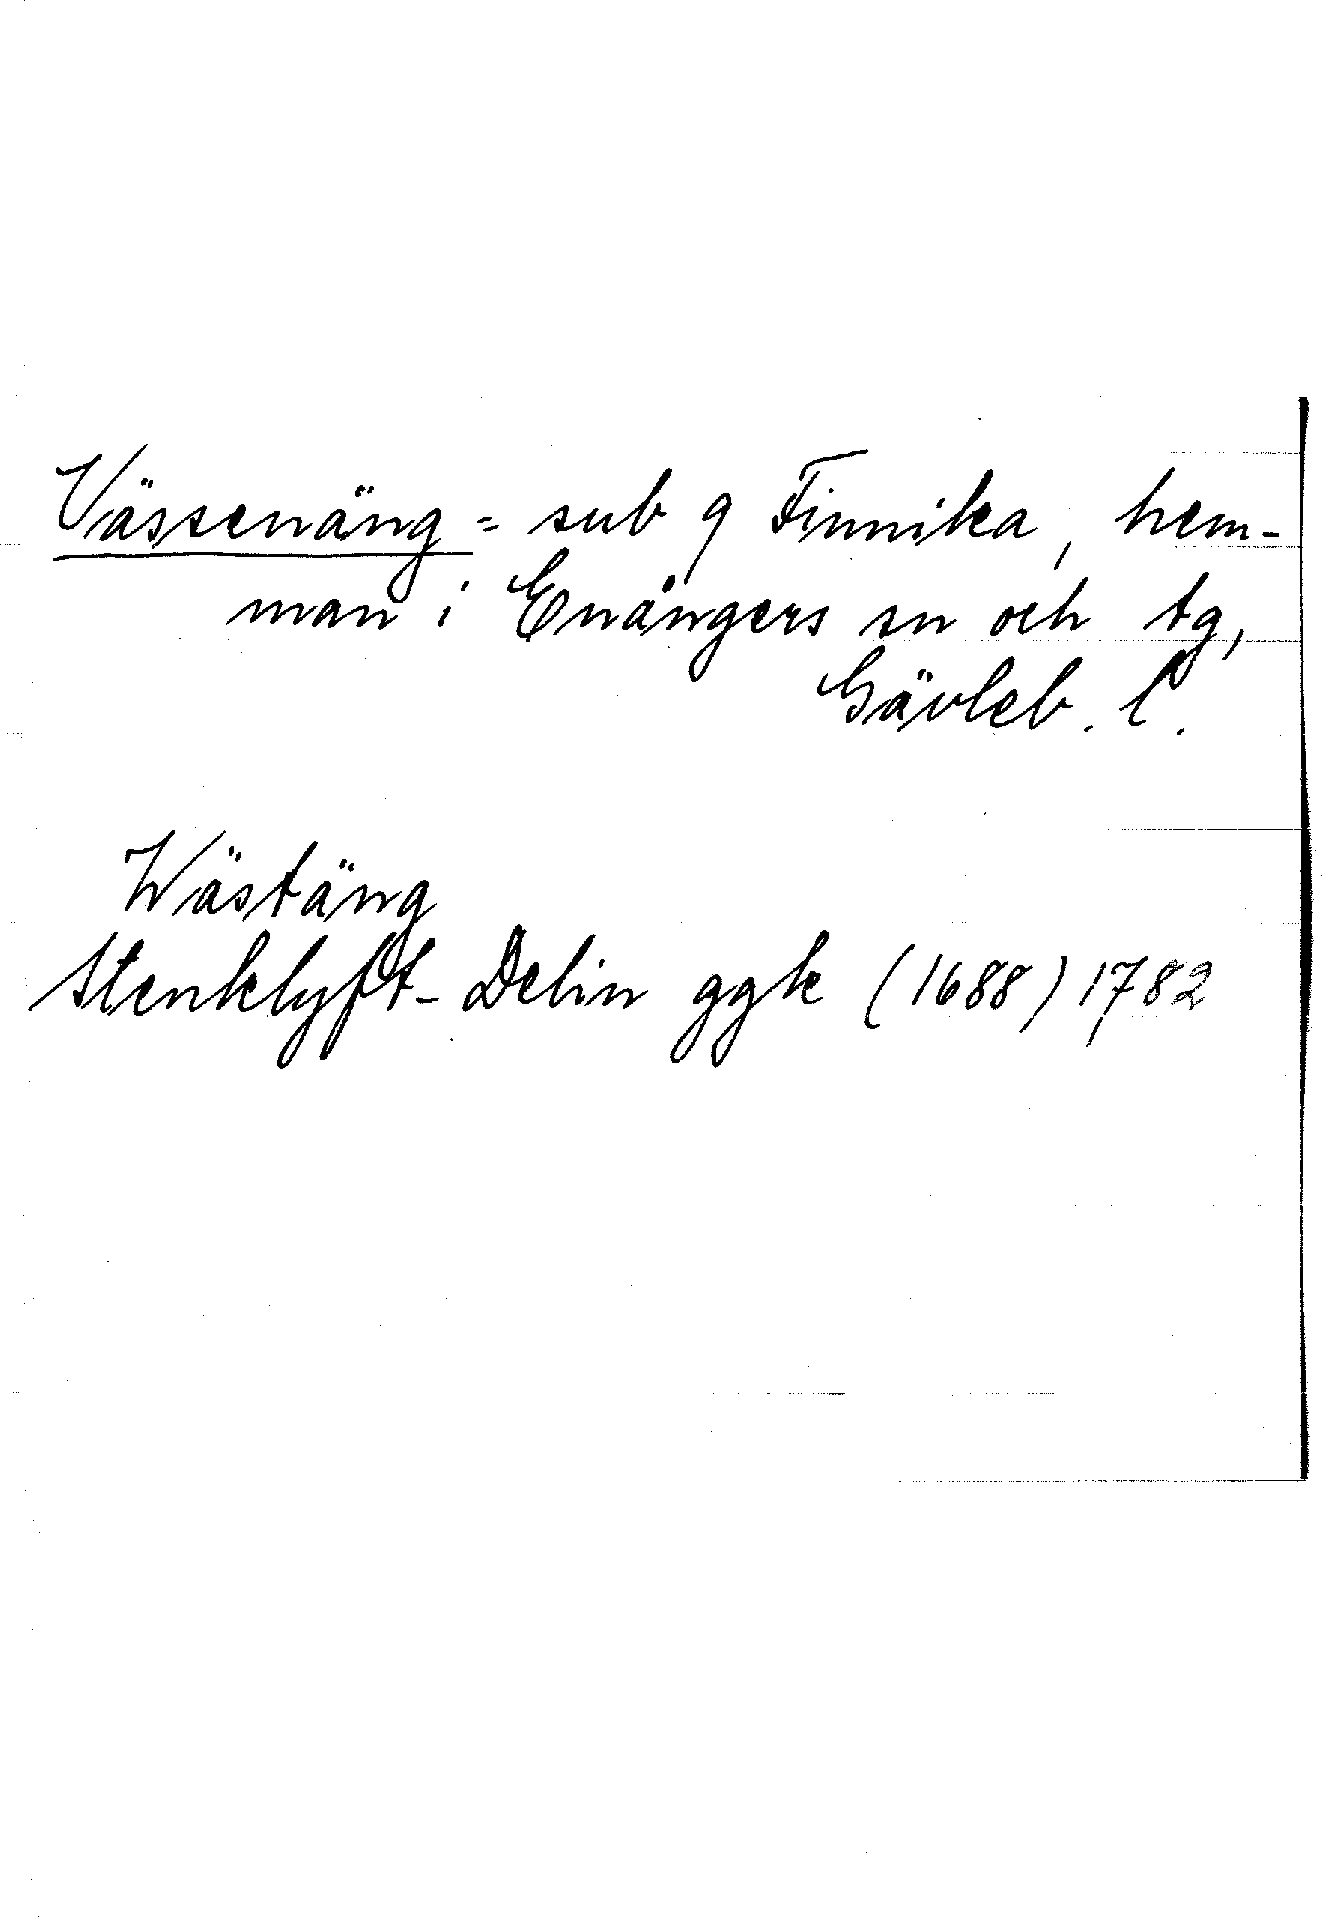 Vässenäng = sub 9 Finnika, hem-
man i Enångers sn och tg,
Gävleb. l.
Wästäng
Stenklyft- Delin ggk (1688) 1782